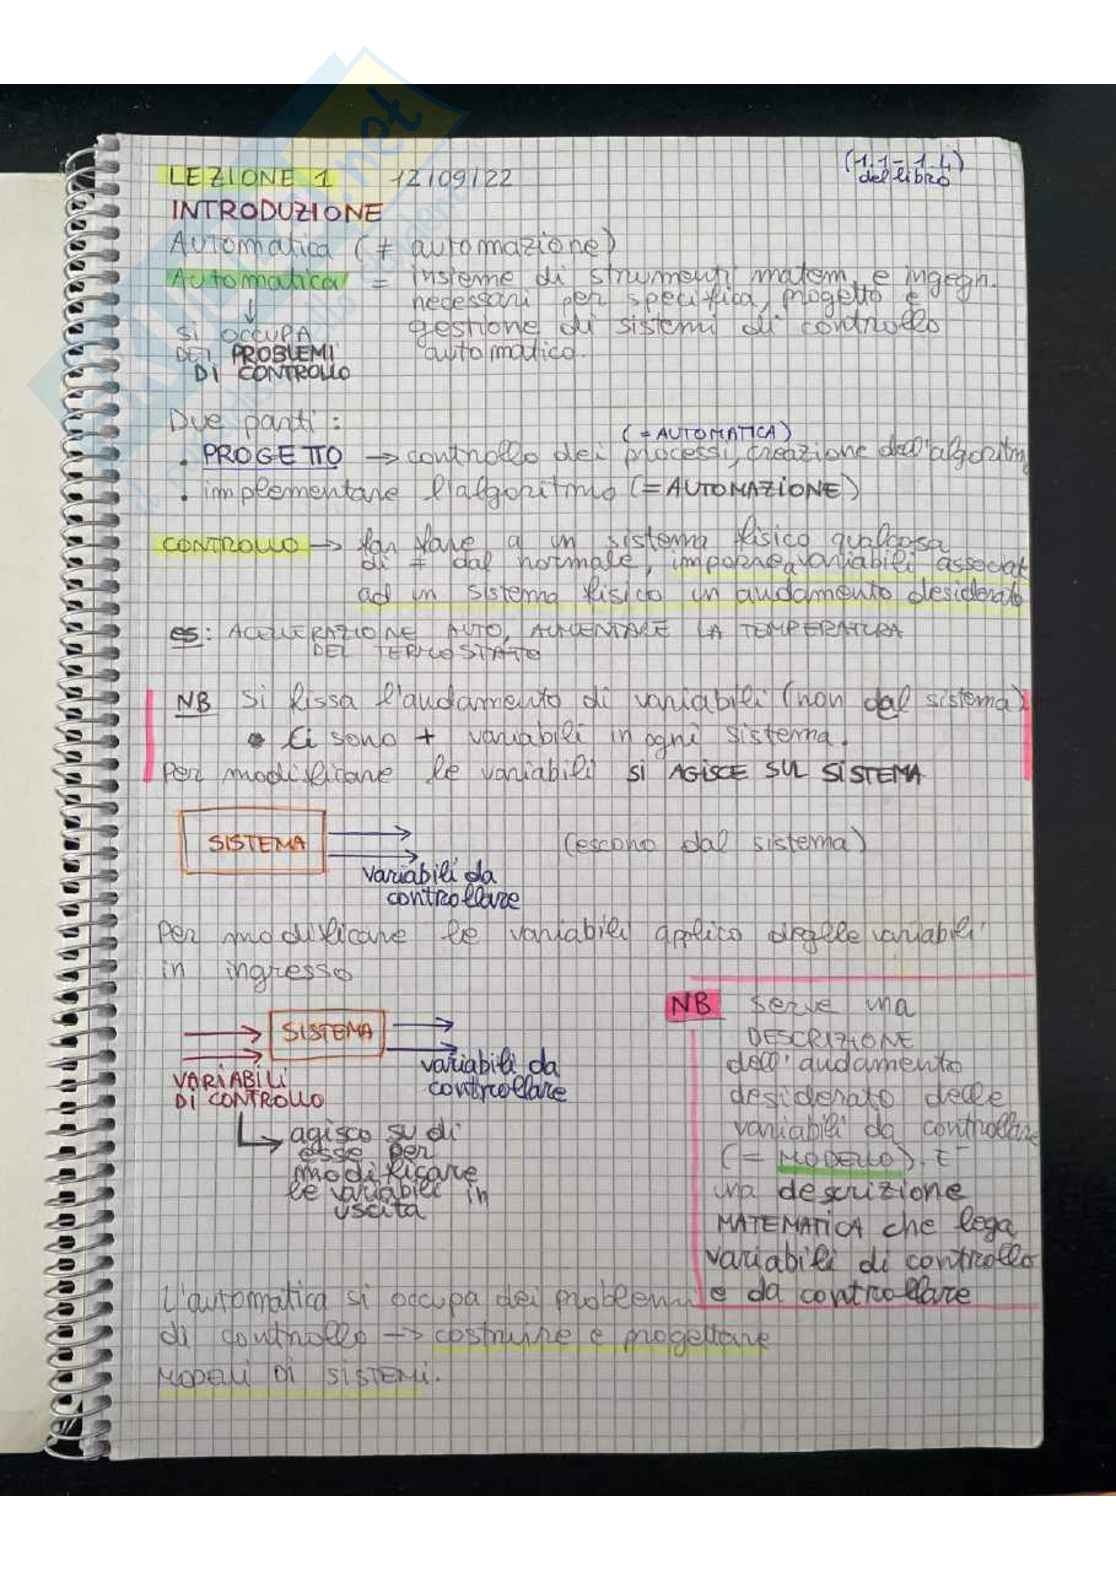 LEZIONE 1 12/09/22
(1.1 - 1.4)
del libro
INTRODUZIONE
Automatica (≠ automazione)
Automatica = insieme di strumenti matem. e ingegn.
necessari per specifica, progetto e
gestione di sistemi di controllo
automatico.
↓
SI OCCUPA
DEI PROBLEMI
DI CONTROLLO
Due parti:
(= AUTOMATICA)
. PROGETTO → controllo dei processi, creazione dell'algoritm
. implementare l'algoritmo (= AUTOMAZIONE)
CONTROLLO → far fare a un sistema fisico qualcosa
di ≠ dal normale, imporre a variabili associat
ad un sistema fisico un andamento desiderato
es: ACCELERAZIONE AUTO, AUMENTARE LA TEMPERATURA
DEL TERMOSTATO
NB Si fissa l'andamento di variabili (non del sistema)
• Ci sono + variabili in ogni sistema.
Per modificare le variabili SI AGISCE SUL SISTEMA
SISTEMA
(escono dal sistema)
variabili da
controllare
Per modificare le variabili applico degllevariabili
in ingresso
SISTEMA
variabili da
controllare
VARIABILI
DI CONTROLLO
agisco su di
esse per
modificare
le variabili in
uscita
NB Serve una
DESCRIZIONE
dell'andamento
desiderato delle
variabili da controllare
(= MODELLO). E'
una descrizione
MATEMATICA che lega
variabili di controllo
e da controllare
L'automatica si occupa dei problemi
di controllo → costruire e progettare
MODELLI DI SISTEMI.